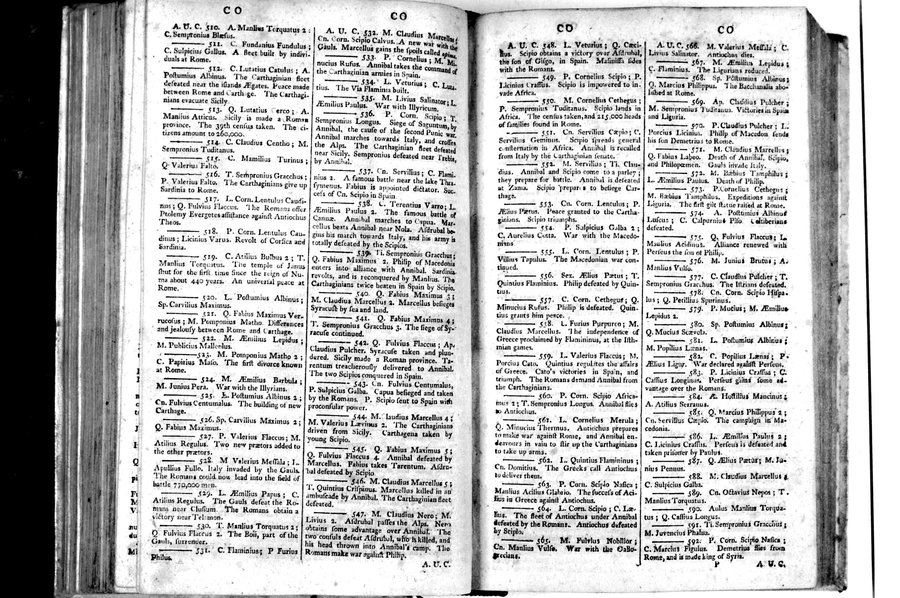 C O
A. U. C. 510. A. Manlius Torquatus 2 ;
C. Sempronius Blæsus.
511. C. Fundanius Fundulus ;
C. Sulpicius Gallus. A fleet built by indivi-
duals at Rome.
512. C. Lutatius Catulus ; A.
Postumius Albinus. The Carthaginian fleet
defeated near the islands Ægates. Peace made
between Rome and Carthage. The Carthagi-
nians evacuate Sicily
513. Q. Lutatius Cerco ; A.
Manlius Atticus. Sicily is made a Roman
province. The 39th census taken. The ci-
tizens amount to 260,000.
514. C. Claudius Centho ; M.
Sempronius Tuditanus.
515. C. Mamilius Turinus ;
Q. Valerius Falto.
516. T. Sempronius Gracchus ;
P. Valerius Falto. The Carthaginians give up
Sardinia to Rome.
517. L. Corn. Lentulus Caudi-
nus ; Q. Fulvius Flaccus. The Romans offer
Ptolemy Evergetes assistance against Antiochus
Theos.
518. P. Corn. Lentulus Cau-
dinus ; Licinius Varus. Revolt of Corsica and
Sardinia.
519. C. Atilius Bulbus 2 ; T.
Manlius Torquatus. The temple of Janus
shut for the first time since the reign of Nu-
ma about 440 years. An universal peace at
Rome.
520. L. Postumius Albinus ;
Sp. Carvilius Maximus.
521. Q. Fabius Maximus Ver-
rucosus ; M. Pomponius Matho Differences
and jealousy between Rome and Carthage.
522. M. Æmilius Lepidus ;
M. Publicius Malleolus.
523. M. Pomponius Matho 2 ;
C. Papirius Maso. The first divorce known
at Rome.
524. M. Æmilius Barbula ;
M. Junius Pera. War with the Illyrians.
525. L. Postumius Albinus 2 ;
Cn. Fulvius Centumalus. The building of new
Carthage.
526. Sp. Carvilius Maximus 2 ;
Q. Fabius Maximus.
527. P. Valerius Flaccus ; M.
Atilius Regulus. Two new prætors added to
the other prætors.
528. M Valerius Messala ; L.
Apullius Fullo. Italy invaded by the Gauls.
The Romans could now lead into the field of
battle 750,000 men.
529. L. Æmilius Papus ; C.
Atilius Regulus. The Gauls defeat the Ro-
mans near Clusium. The Romans obtain a
victory near Telamon.
530. T. Manlius Torquatus 2 ;
Q Fulvius Flaccus 2. The Boii, part of the
Gauls, surrender.
531. C. Flaminius ; P Furius
Philus.
C O
A. U. C. 532. M. Claudius Marcellus ;
Cn. Corn. Scipio Calvus. A new war with the
Gauls. Marcellus gains the spoils called opima.
533. P. Cornelius ; M. Mi-
nucius Rufus. Annibal takes the command of
the Carthaginian armies in Spain.
534. L. Veturius ; C. Luta-
tius. The Via Flaminia built.
535. M. Livius Salinator ; L.
Æmilius Paulus. War with Illyricum.
536. P. Corn. Scipio ; T.
Sempronius Longus. Siege of Saguntum, by
Annibal, the cause of the second Punic war.
Annibal marches towards Italy, and crosses
the Alps. The Carthaginian fleet defeated
near Sicily. Sempronius defeated near Trebia,
by Annibal.
537. Cn. Servilius ; C. Flami-
nius 2. A famous battle near the lake Thra-
symenus. Fabius is appointed dictator. Suc-
cess of Cn. Scipio in Spain
538. C. Terentius Varro ; L.
Æmilius Paulus 2. The famous battle of
Cannæ. Annibal marches to Capua. Mar-
cellus beats Annibal near Nola. Asdrubal be-
gins his march towards Italy, and his army is
totally defeated by the Scipios.
539. Ti. Sempronius Gracchus ;
Q. Fabius Maximus 2. Philip of Macedonia
enters into alliance with Annibal. Sardinia
revolts, and is reconquered by Manlius. The
Carthaginians twice beaten in Spain by Scipio.
540. Q. Fabius Maximus 3 ;
M. Claudius Marcellus 2. Marcellus besieges
Syracuse by sea and land.
541. Q. Fabius Maximus 4 ;
T. Sempronius Gracchus 3. The siege of Sy-
racuse continued.
542. Q. Fulvius Flaccus ; Ap.
Claudius Pulcher. Syracuse taken and plun-
dered. Sicily made a Roman province. Ta-
rentum treacherously delivered to Annibal.
The two Scipios conquered in Spain.
543. Cn. Fulvius Centumalus,
P. Sulpicius Galba. Capua besieged and taken
by the Romans. P. Scipio sent to Spain with
proconsular power.
544. M. Claudius Marcellus 4 ;
M. Valerius Lævinus 2. The Carthaginians
driven from Sicily. Carthagena taken by
young Scipio.
545. Q. Fabius Maximus 5 ;
Q. Fulvius Flaccus 4. Annibal defeated by
Marcellus. Fabius takes Tarentum. Asdru-
bal defeated by Scipio.
546. M. Claudius Marcellus 5 ;
T. Quintius Crispinus. Marcellus killed in an
ambuscade by Annibal. The Carthaginian fleet
defeated.
547. M. Claudius Nero ; M.
Livius 2. Asdrubal passes the Alps. Nero
obtains some advantage over Annibal. The
two consuls defeat Asdrubal, who is killed, and
his head thrown into Annibal's camp. The
Romans make war against Philip.
A. U. C.
C O
A. U. C. 548. L. Veturius ; Q. Cæci-
lius. Scipio obtains a victory over Asdrubal,
the son of Gisgo, in Spain. Masinissa sides
with the Romans.
549. P. Cornelius Scipio ; P.
Licinius Crassus. Scipio is impowered to in-
vade Africa.
550. M. Cornelius Cethegus ;
P. Sempronius Tuditanus. Scipio lands in
Africa. The census taken, and 215,000 heads
of families found in Rome.
551. Cn. Servilius Cæpio ; C.
Servilius Geminus. Scipio spreads general
consternation in Africa. Annibal is recalled
from Italy by the Carthaginian senate.
552. M. Servilius ; Ti. Clau-
dius. Annibal and Scipio come to a parley ;
they prepare for battle. Annibal is defeated
at Zama. Scipio prepares to besiege Car-
thage.
553. Cn. Corn. Lentulus ; P.
Ælius Pætus. Peace granted to the Cartha-
ginians. Scipio triumphs.
554. P. Sulpicius Galba 2 ;
C. Aurelius Cotta. War with the Macedo-
nians
555. L. Corn. Lentulus ; P.
Villius Tapulus. The Macedonian war con-
tinued.
556. Sex. Ælius Pætus ; T.
Quintius Flaminius. Philip defeated by Quin-
tius.
557. C. Corn. Cethegus ; Q.
Minucius Rufus. Philip is defeated. Quin-
tius grants him peace.
558. L. Furius Purpureo ; M.
Claudius Marcellus. The independence of
Greece proclaimed by Flamininus, at the Isth-
mian games.
559. L. Valerius Flaccus ; M.
Porcius Cato. Quintius regulates the affairs
of Greece. Cato's victories in Spain, and
triumph. The Romans demand Annibal from
the Carthaginians.
560. P. Corn. Scipio Africa-
nus 2 ; T. Sempronius Longus. Annibal flies
to Antiochus.
561. L. Cornelius Merula ;
Q. Minucius Thermus. Antiochus prepares
to make war against Rome, and Annibal en-
deavours in vain to stir up the Carthaginians
to take up arms.
562. L. Quintius Flamininus ;
Cn. Domitius. The Greeks call Antiochus
to deliver them.
563. P. Corn. Scipio Nasica ;
Manlius Acilius Glabrio. The success of Aci-
lius in Greece against Antiochus.
564. L. Corn. Scipio ; C. Læ-
lius. The fleet of Antiochus under Annibal
defeated by the Romans. Antiochus defeated
by Scipio.
565. M. Fulvius Nobilior ;
Cn. Manlius Vulso. War with the Gallo-
grecians.
C O
A. U. C. 566. M. Valerius Messala ; C.
Livius Salinator. Antiochus dies.
567. M. Æmilius Lepidus ;
C. Flaminius. The Ligurians reduced.
568. Sp. Postumius Albinus ;
Q. Marcius Philippus. The Bacchanalia abo-
lished at Rome.
569. Ap. Claudius Pulcher ;
M. Sempronius Tuditanus. Victories in Spain
and Liguria.
570. P. Claudius Pulcher ; L.
Porcius Licinius. Philip of Macedon sends
his son Demetrius to Rome.
571. M. Claudius Marcellus ;
Q. Fabius Labeo. Death of Annibal, Scipio,
and Philopœmen. Gauls invade Italy.
572. M. Bæbius Tamphilus ;
L. Æmilius Paulus. Death of Philip.
573. P. Cornelius Cethegus ;
M. Bæbius Tamphilus. Expeditions against
Liguria. The first gilt statue raised at Rome.
574. A. Postumius Albinus
Luscus ; C. Calpurnius Piso Celtiberians
defeated.
575. Q. Fulvius Flaccus ; L.
Manlius Acidinus. Alliance renewed with
Perseus the son of Philip.
576. M. Junius Brutus ; A.
Manlius Vulso.
577. C. Claudius Pulcher ; T.
Sempronius Gracchus. The Istrians defeated.
578. Cn. Corn. Scipio Hispa-
lus ; Q. Petillius Spurinus.
579. P. Mucius ; M. Æmilius
Lepidus 2.
580. Sp. Postumius Albinus ;
Q. Mucius Scævola.
581. L. Postumius Albinus ;
M. Popilius Lænas.
582. C. Popilius Lænas ; P.
Ælius Ligur. War declared against Perseus.
583. P. Licinius Crassus ; C.
Cassius Longinus. Perseus gains some ad-
vantage over the Romans.
584. A. Hostilius Mancinus ;
A. Atilius Serranus.
585. Q. Marcius Philippus 2 ;
Cn. Servilius Cæpio. The campaign in Ma-
cedonia.
586. L. Æmilius Paulus 2 ;
C. Licinius Crassus. Perseus is defeated and
taken prisoner by Paulus.
587. Q. Ælius Pætus ; M. Ju-
nius Pennus.
588. M. Claudius Marcellus ;
C. Sulpicius Galba.
589. Cn. Octavius Nepos ; T.
Manlius Torquatus.
590. Aulus Manlius Torqua-
tus ; Q. Cassius Longus.
591. Ti. Sempronius Gracchus ;
M. Juventius Phalus.
592. P. Corn. Scipio Nasica ;
C. Marcius Figulus. Demetrius flies from
Rome, and is made king of Syria.
P A. U. C.